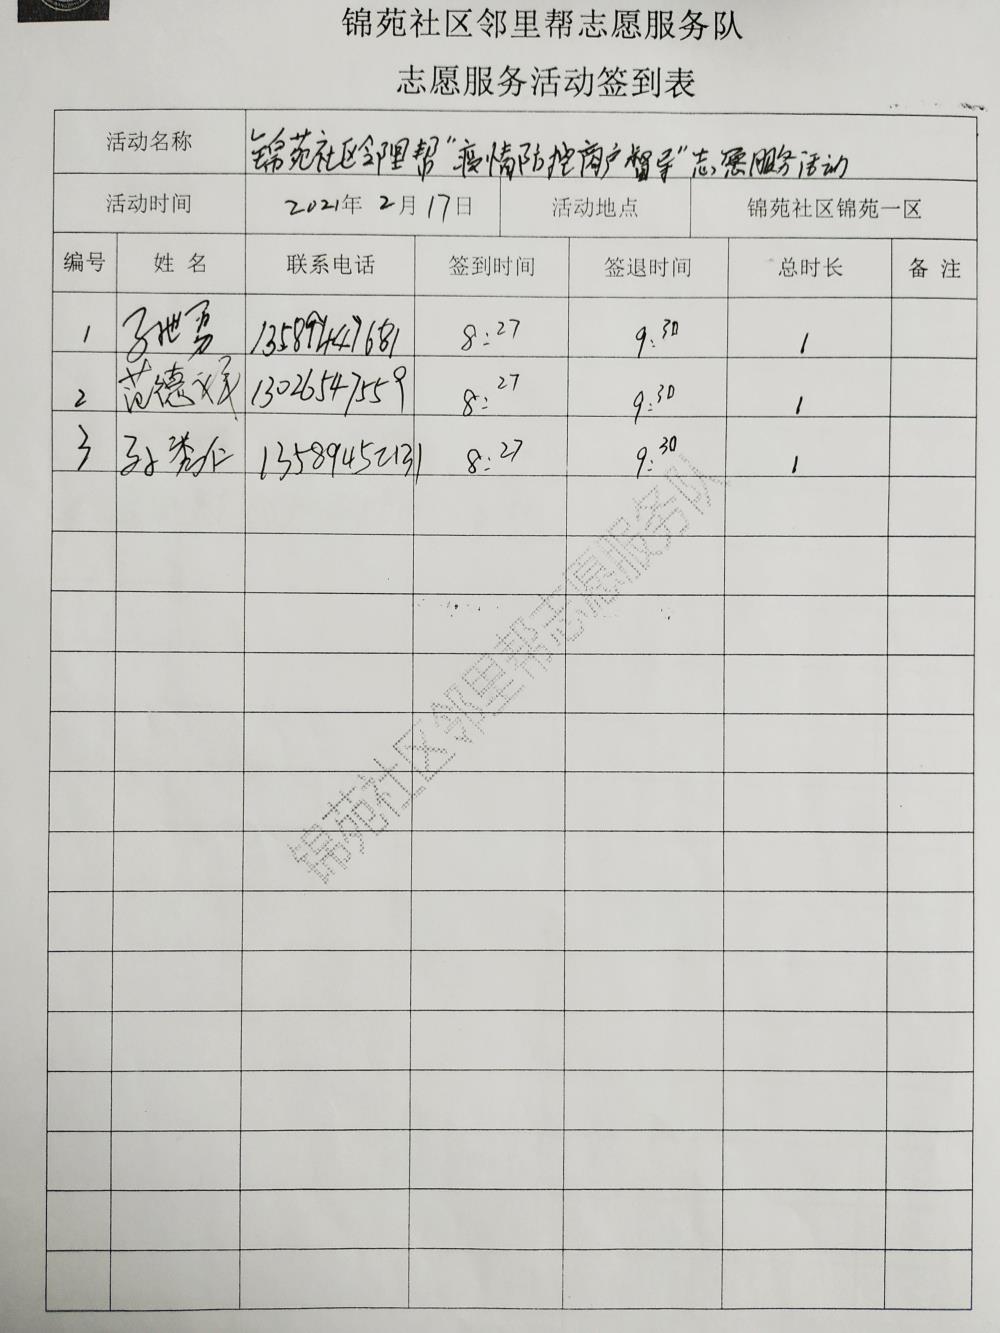 锦苑社区邻里帮志愿服务队
志愿服务活动签到表
活动名称 锦苑社区邻里帮“疫情防控商户督导”志愿服务活动
活动时间 2021年2月17日 活动地点 锦苑社区锦苑一区
编号 姓名 联系电话 签到时间 签退时间 总时长 备注
1 孙世勇 8:27 9:30 1
2 范德 13026547559 8:27 9:30 1
3 孙秀仁 13589452131 8:27 9:30 1
锦苑社区邻里帮志愿服务队